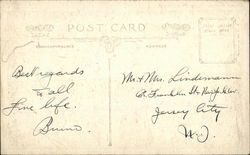 POST CARD
CORRESPONDENCE
ADDRESS
Best regards
to all
Fine life.
Bruno.
Mr & Mrs. Lindemann
Franklin St
Jersey City
N.J.